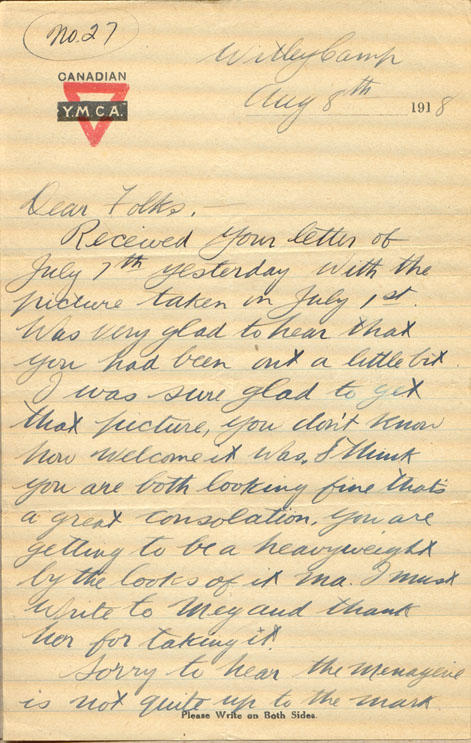 No. 27
Witley Camp
CANADIAN
Y.M.C.A.
Aug 8th 1918
Dear Folks, —
Received your letter of
July 7th yesterday with the
picture taken on July 1st.
Was very glad to hear that
you had been out a little bit.
I was sure glad to get
that picture, you don't know
how welcome it was, I think
you are both looking fine that's
a great consolation, you are
getting to be a heavyweight
by the looks of it Ma. I must
write to Meg and thank
her for taking it.
Sorry to hear the menagerie
is not quite up to the mark.
Please Write on Both Sides.